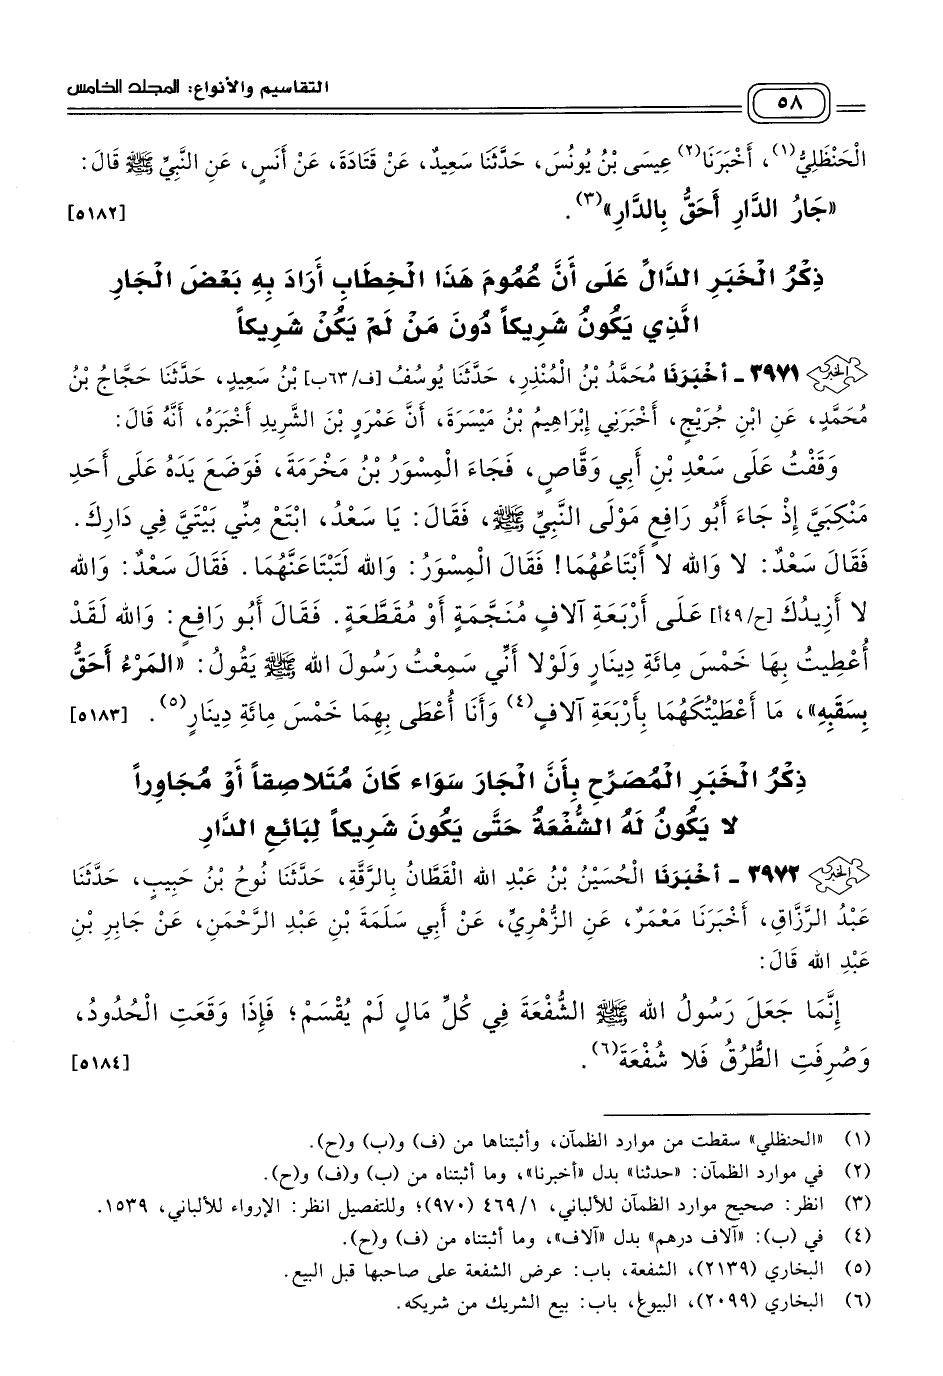 ٥٨ التقاسيم والأنواع: المجلد الخامس
الْحَنْظَلِيُّ(١)، أَخْبَرَنَا(٢) عِيسَى بْنُ يُونُسَ، حَدَّثَنَا سَعِيدٌ، عَنْ قَتَادَةَ، عَنْ أَنَسٍ، عَنِ النَّبِيِّ ﷺ قَالَ:
«جَارُ الدَّارِ أَحَقُّ بِالدَّارِ»(٣). [٥١٨٢]
ذِكْرُ الْخَبَرِ الدَّالِّ عَلَى أَنَّ عُمُومَ هَذَا الْخِطَابِ أَرَادَ بِهِ بَعْضَ الْجَارِ
الَّذِي يَكُونُ شَرِيكاً دُونَ مَنْ لَمْ يَكُنْ شَرِيكاً
الخبر ٣٩٧١ - أخْبَرَنَا مُحَمَّدُ بْنُ الْمُنْذِرِ، حَدَّثَنَا يُوسُفُ [ف/٦٣ب] بْنُ سَعِيدٍ، حَدَّثَنَا حَجَّاجُ بْنُ
مُحَمَّدٍ، عَنِ ابْنِ جُرَيْجٍ، أَخْبَرَنِي إِبْرَاهِيمُ بْنُ مَيْسَرَةَ، أَنَّ عَمْرَو بْنَ الشَّرِيدِ أَخْبَرَهُ، أَنَّهُ قَالَ:
وَقَفْتُ عَلَى سَعْدِ بْنِ أَبِي وَقَّاصٍ، فَجَاءَ الْمِسْوَرُ بْنُ مَخْرَمَةَ، فَوَضَعَ يَدَهُ عَلَى أَحَدِ
مَنْكِبَيَّ إِذْ جَاءَ أَبُو رَافِعٍ مَوْلَى النَّبِيِّ ﷺ، فَقَالَ: يَا سَعْدُ، ابْتَعْ مِنِّي بَيْتَيَّ فِي دَارِكَ.
فَقَالَ سَعْدٌ: لا وَالله لا أَبْتَاعُهُمَا! فَقَالَ الْمِسْوَرُ: وَالله لَتَبْتَاعَنَّهُمَا. فَقَالَ سَعْدٌ: وَالله
لا أَزِيدُكَ [ح/٤٩أ] عَلَى أَرْبَعَةِ آلافٍ مُنَجَّمَةٍ أَوْ مُقَطَّعَةٍ. فَقَالَ أَبُو رَافِعٍ: وَالله لَقَدْ
أُعْطِيتُ بِهَا خَمْسَ مِائَةِ دِينَارٍ وَلَوْلا أَنِّي سَمِعْتُ رَسُولَ الله ﷺ يَقُولُ: «المَرْءُ أَحَقُّ
بِسَقَبِهِ»، مَا أَعْطَيْتُكَهُمَا بِأَرْبَعَةِ آلافٍ(٤) وَأَنَا أُعْطَى بِهِمَا خَمْسَ مِائَةِ دِينَارٍ(٥). [٥١٨٣]
ذِكْرُ الْخَبَرِ الْمُصَرِّحِ بِأَنَّ الْجَارَ سَوَاء كَانَ مُتَلاصِقاً أَوْ مُجَاوِراً
لا يَكُونُ لَهُ الشُّفْعَةُ حَتَّى يَكُونَ شَرِيكاً لِبَائِعِ الدَّارِ
الخبر ٣٩٧٢ - أخْبَرَنَا الْحُسَيْنُ بْنُ عَبْدِ الله الْقَطَّانُ بِالرَّقَّةِ، حَدَّثَنَا نُوحُ بْنُ حَبِيبٍ، حَدَّثَنَا
عَبْدُ الرَّزَّاقِ، أَخْبَرَنَا مَعْمَرٌ، عَنِ الزُّهْرِيِّ، عَنْ أَبِي سَلَمَةَ بْنِ عَبْدِ الرَّحْمَنِ، عَنْ جَابِرِ بْنِ
عَبْدِ الله قَالَ:
إِنَّمَا جَعَلَ رَسُولُ الله ﷺ الشُّفْعَةَ فِي كُلِّ مَالٍ لَمْ يُقْسَمْ؛ فَإِذَا وَقَعَتِ الْحُدُودُ،
وَصُرِفَتِ الطُّرُقُ فَلا شُفْعَةَ(٦). [٥١٨٤]
(١) «الحنظلي» سقطت من موارد الظمآن، وأثبتناها من (ف) و(ب) و(ح).
(٢) في موارد الظمآن: «حدثنا» بدل «أخبرنا»، وما أثبتناه من (ب) و(ف) و(ح).
(٣) انظر: صحيح موارد الظمآن للألباني، ٤٦٩/١ (٩٧٠)؛ وللتفصيل انظر: الإرواء للألباني، ١٥٣٩.
(٤) في (ب): «آلاف درهم» بدل «آلاف»، وما أثبتناه من (ف) و(ح).
(٥) البخاري (٢١٣٩)، الشفعة، باب: عرض الشفعة على صاحبها قبل البيع.
(٦) البخاري (٢٠٩٩)، البيوع، باب: بيع الشريك من شريكه.